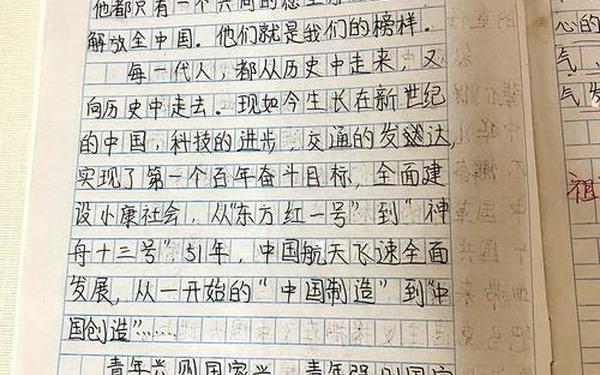 他都只有一个共同的
解放全中国。他们就是我们的榜样。
每一代人,都从历史中走来,又
向历史中走去。现如今生长在新世纪
的中国,科技的进步,交通的发达,
实现了第一个百年奋斗目标,全面建
设小康社会,从“东方红一号”到“神
舟十三号”51年,中国航天飞速全面
发展,从一开始的“中国制造”到“中
国创造”……
青年
心的
气
气发
祖